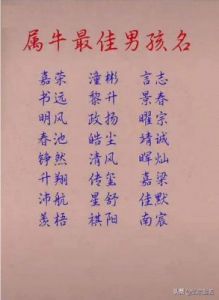 属牛最佳男孩名
嘉荣 潼彬 言志
书远 黎升 景春
明风 政扬 曜宗
春池 皓尘 靖诚
铮然 清风 晖灿
升翔 传玺 嘉梁
沛航 星舒 佳默
羡梧 祺阳 南宸